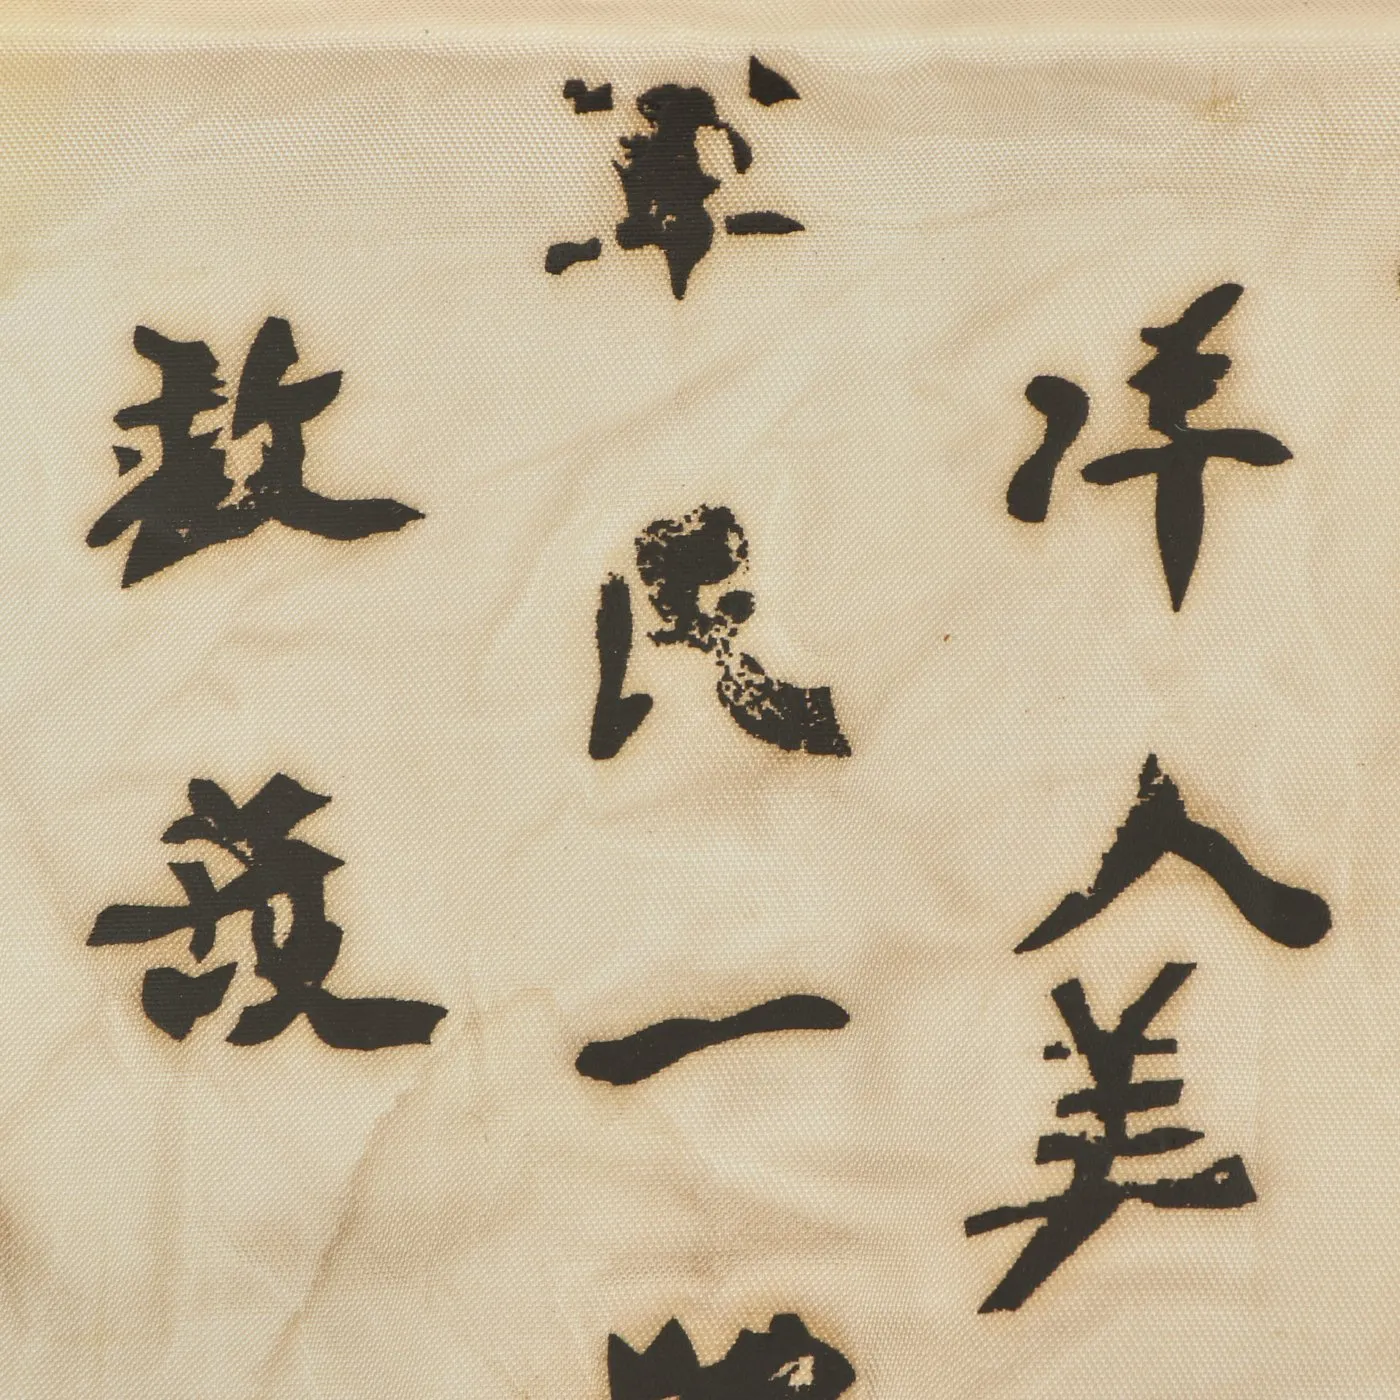 洋人美
軍民一
救護